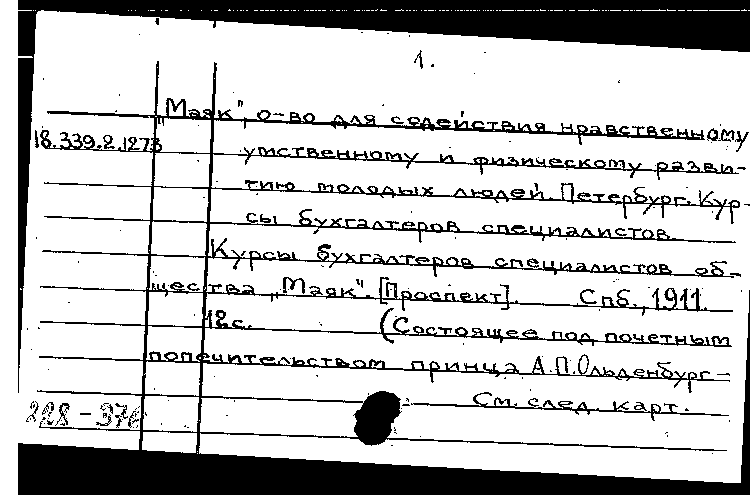 1.
„Маяк", о-во для содействия нравственному
18.339.2.1273
умственному и физическому разви-
тию молодых людей. Петербург. Кур-
сы бухгалтеров специалистов
Курсы бухгалтеров специалистов об-
щества „Маяк". [Проспект]. Спб., 1911.
12 с. (Состоящее под почетным
попечительством принца А.П.Ольденбург-
См. след. карт.
228-376